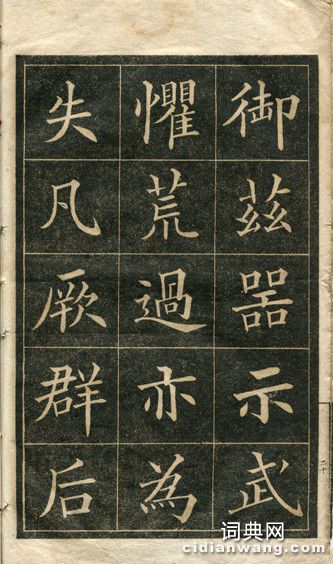 御茲器示武
懼荒過亦為
失凡厥群后
二十
词典网
cidianwang.com